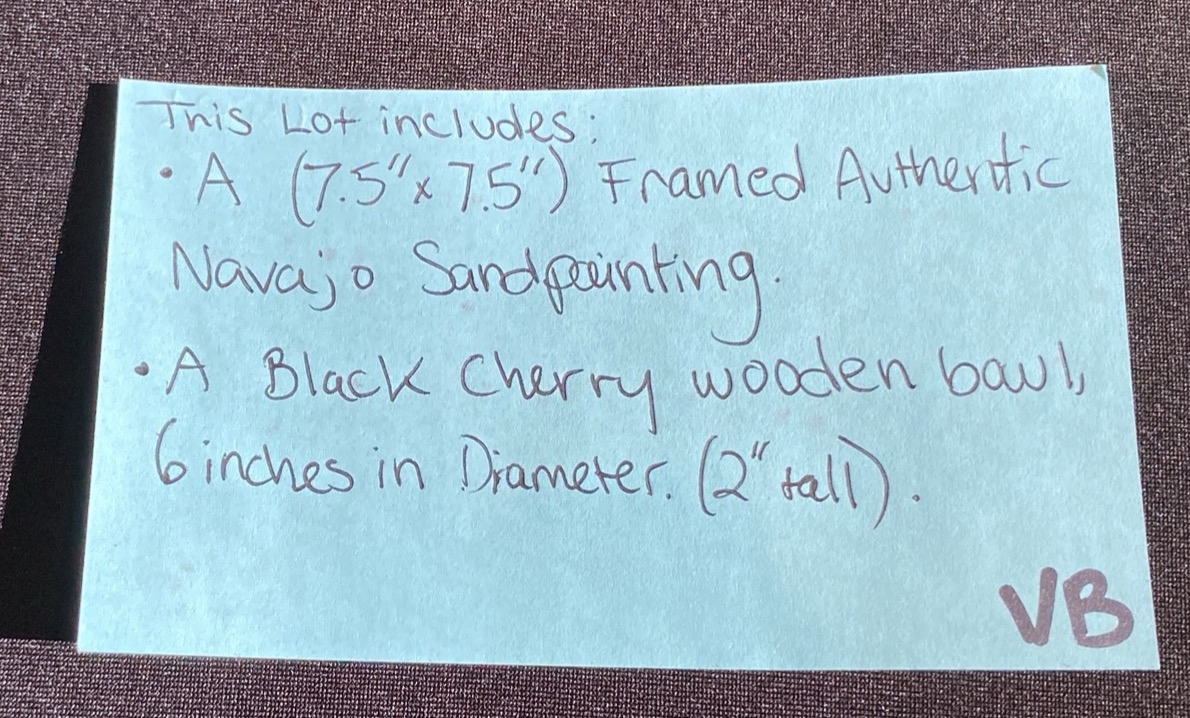 This Lot includes:
• A (7.5" x 7.5") Framed Authentic
Navajo Sandpainting.
• A Black Cherry wooden bawl,
6 inches in Diameter. (2" tall).
VB